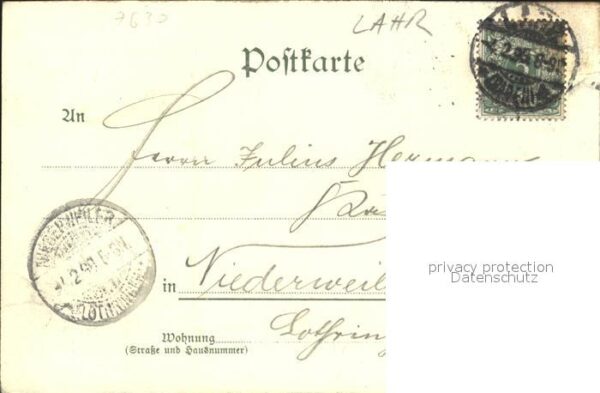 7630
LAHR
Postkarte
An
Herrn Julius Hermann
in Niederweil
Lothrin
Wohnung
(Straße und Hausnummer)
NIEDERWEILER
LOTHRINGEN
privacy protection
Datenschutz